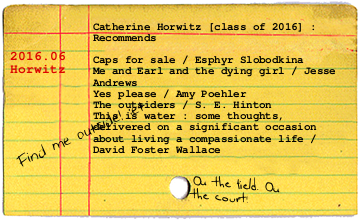 Catherine Horwitz [class of 2016] :
Recommends
2016.06
Horwitz
Caps for sale / Esphyr Slobodkina
Me and Earl and the dying girl / Jesse
Andrews
Yes please / Amy Poehler
The outsiders / S. E. Hinton
This is water : some thoughts,
delivered on a significant occasion
about living a compassionate life /
David Foster Wallace
Find me outside!
On the field. On
the court.